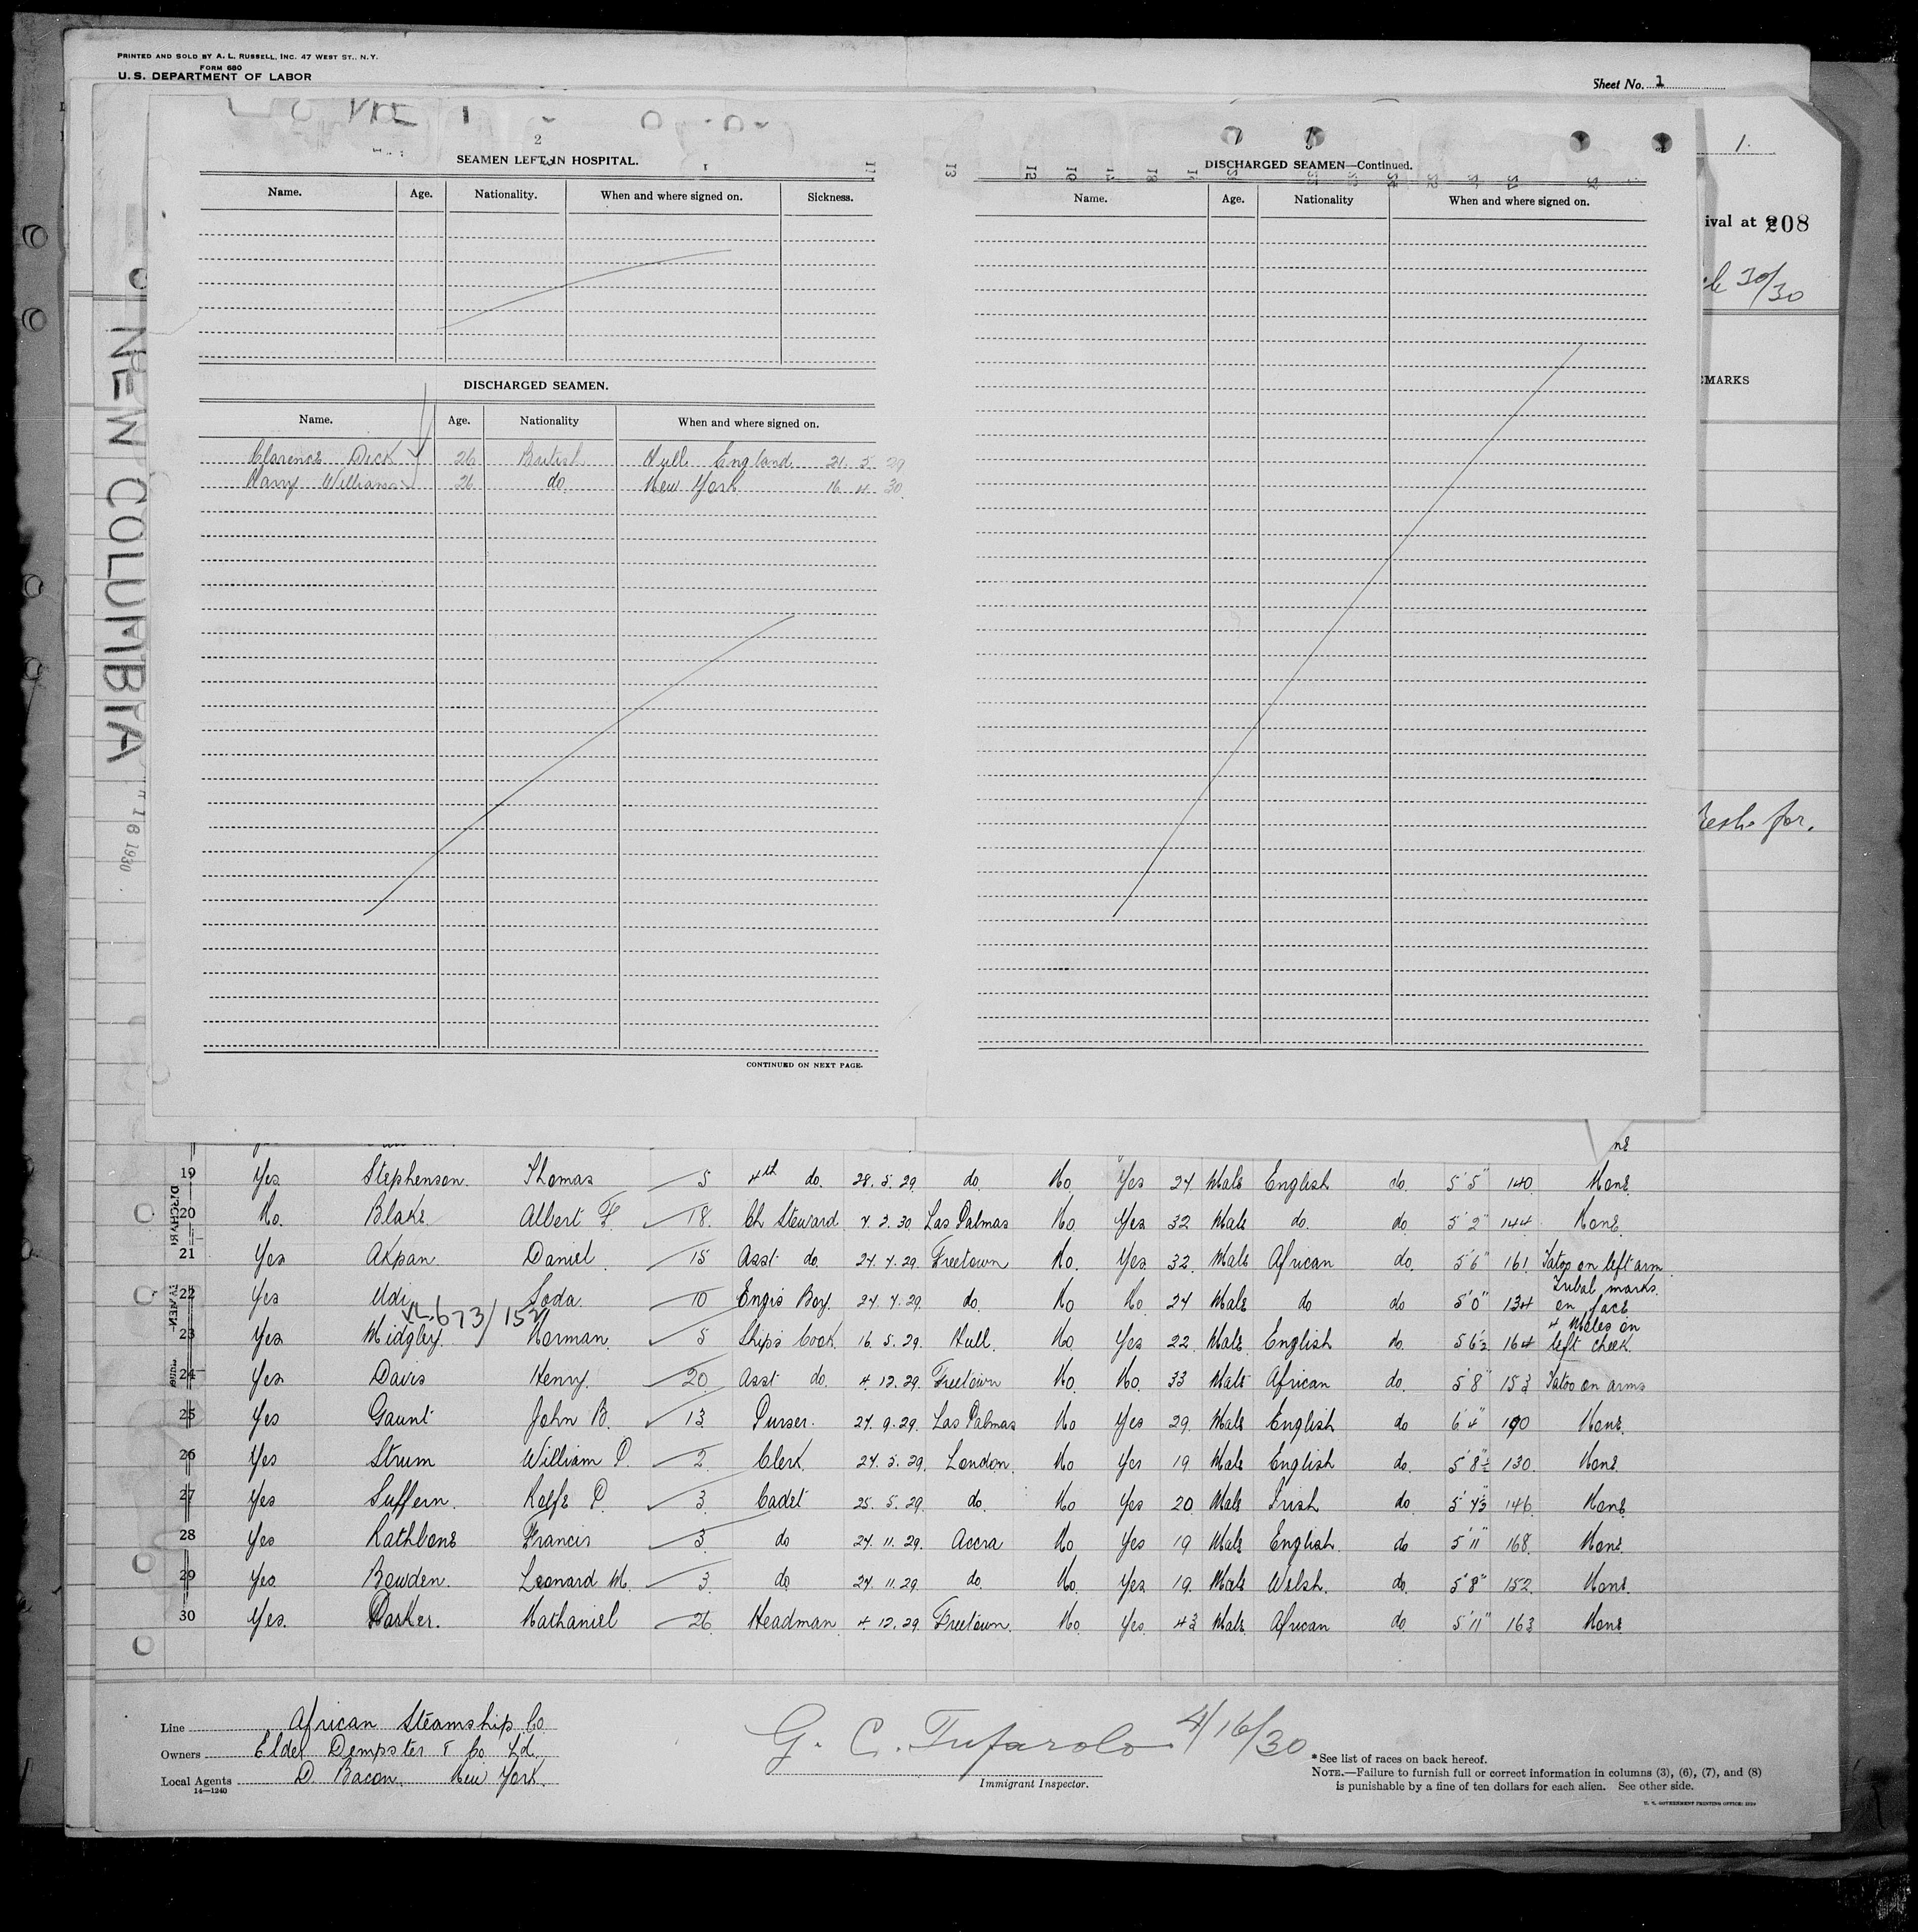 PRINTED AND SOLD BY A. L. RUSSELL, INC. 47 WEST ST., N.Y.
FORM 680
U. S. DEPARTMENT OF LABOR
Sheet No. 1
NEW COLUMBIA
16 1930
2
SEAMEN LEFT IN HOSPITAL.
Name. Age. Nationality. When and where signed on. Sickness.
DISCHARGED SEAMEN.
Name. Age. Nationality When and where signed on.
Clarence Dick 26 British Hull England 21. 5. 29
Harry Williams 26 do New York 16 4 30
CONTINUED ON NEXT PAGE.
DISCHARGED SEAMEN—Continued.
Name. Age. Nationality When and where signed on.
1.
ival at 208
30/30
MARKS
19 Yes Stephenson Thomas 5 4th do. 28. 5. 29 do. No Yes 24 Male English do. 5'5" 140 None
20 No. Blake Albert F. 18 Ch Steward 7. 3. 30 Las Palmas No Yes 32 Male do. do 5'2" 144 None
21 Yes Akpan Daniel 15 Asst do. 24. 7. 29 Freetown No. Yes 32 Male African do. 5'6" 161 Tatoo on left arm
22 Yes Udi Soda 10 Engrs Boy 24. 7. 29. do. No No. 24 Male do do 5'0" 134 Tribal marks on face
673/152
23 Yes Midgley Norman 5 Ships Cook 16. 5. 29. Hull. No Yes 22 Male English do. 5 6½ 164 4 Moles on left cheek
24 Yes Davis Henry 20 Asst do. 4. 12. 29. Freetown No. No. 33 Male African do. 5'8" 153 Tatoo on arms
25 Yes Gaunt John B. 13 Purser. 27. 9. 29. Las Palmas No Yes 29 Male English do 6'4" 190 None.
26 Yes Strum William P. 2 Clerk 24. 5. 29. London. No Yes 19 Male English do. 5'8½" 130 None
27 Yes Suffern. Rolfe P. 3 Cadet 25. 5. 29. do. No Yes 20 Male Irish do. 146 None
28 Yes Rathbone Francis 3 do 24. 11. 29. Accra No Yes 19 Male English do 5'11" 168 None.
29 Yes Bowden. Leonard M. 3 do 24. 11. 29 do. No. Yes 19 Male Welsh. do. 5'8" 152 None.
30 Yes. Parker. Nathaniel 26 Headman 4. 12. 29. Freetown. No. Yes. 43 Male African do. 5'11" 163 None
Line African Steamship Co
Owners Elder Dempster & Co Ld.
Local Agents D. Bacon. New York.
14—1240
G. C. Tufarolo 4/16/30
Immigrant Inspector.
*See list of races on back hereof.
NOTE.—Failure to furnish full or correct information in columns (3), (6), (7), and (8)
is punishable by a fine of ten dollars for each alien. See other side.